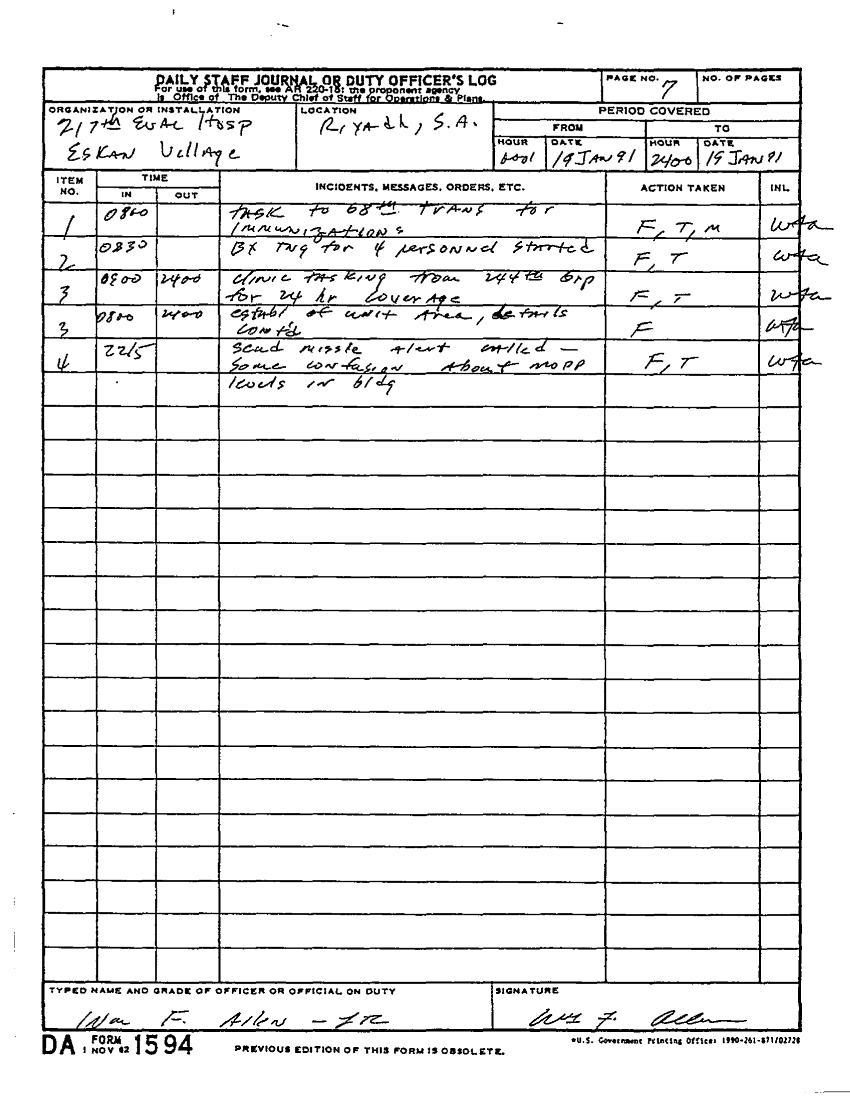 DAILY STAFF JOURNAL OR DUTY OFFICER'S LOG
For use of this form, see AR 220-15; the proponent agency
is Office of The Deputy Chief of Staff for Operations & Plans.
PAGE NO. 7
NO. OF PAGES
ORGANIZATION OR INSTALLATION
217th Evac Hosp
Eskan Village
LOCATION
Riyadh, S.A.
PERIOD COVERED
FROM TO
HOUR DATE HOUR DATE
0001 19 JAN 91 2400 19 JAN 91
ITEM NO. TIME INCIDENTS, MESSAGES, ORDERS, ETC. ACTION TAKEN INL
IN OUT
1 0800 task to 68th trans for
immunizations F, T, M wfa
2 0830 Bx tng for 4 personnel started F, T wfa
3 0900 2400 clinic tasking from 244th Grp
for 24 hr coverage F, T wfa
3 0800 2400 establ of unit area, details
cont'd F wfa
4 2215 scud missle alert called —
some confusion about MOPP F, T wfa
levels in bldg
TYPED NAME AND GRADE OF OFFICER OR OFFICIAL ON DUTY
Wm F. Allen -
SIGNATURE
Wm F. Allen
DA FORM 1 NOV 62 1594
PREVIOUS EDITION OF THIS FORM IS OBSOLETE.
*U.S. Government Printing Office: 1990-261-871/02728